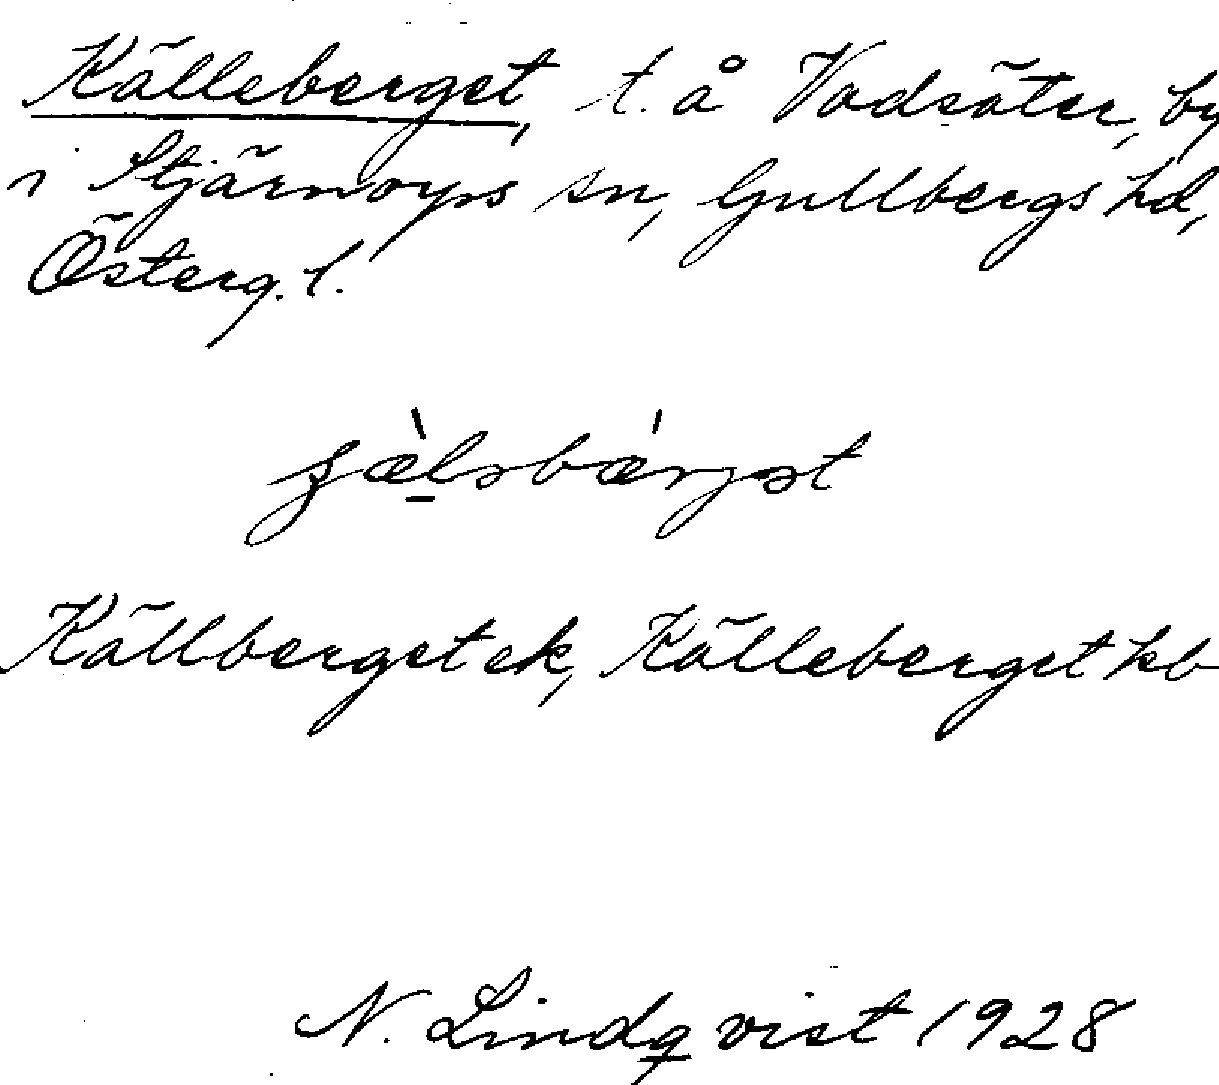 Källeberget, t. å Vadsäter, by
i Stjärnorps sn, Gullbergs hd,
Österg. l.
Källberget ek, Källeberget hb
N. Lindqvist 1928